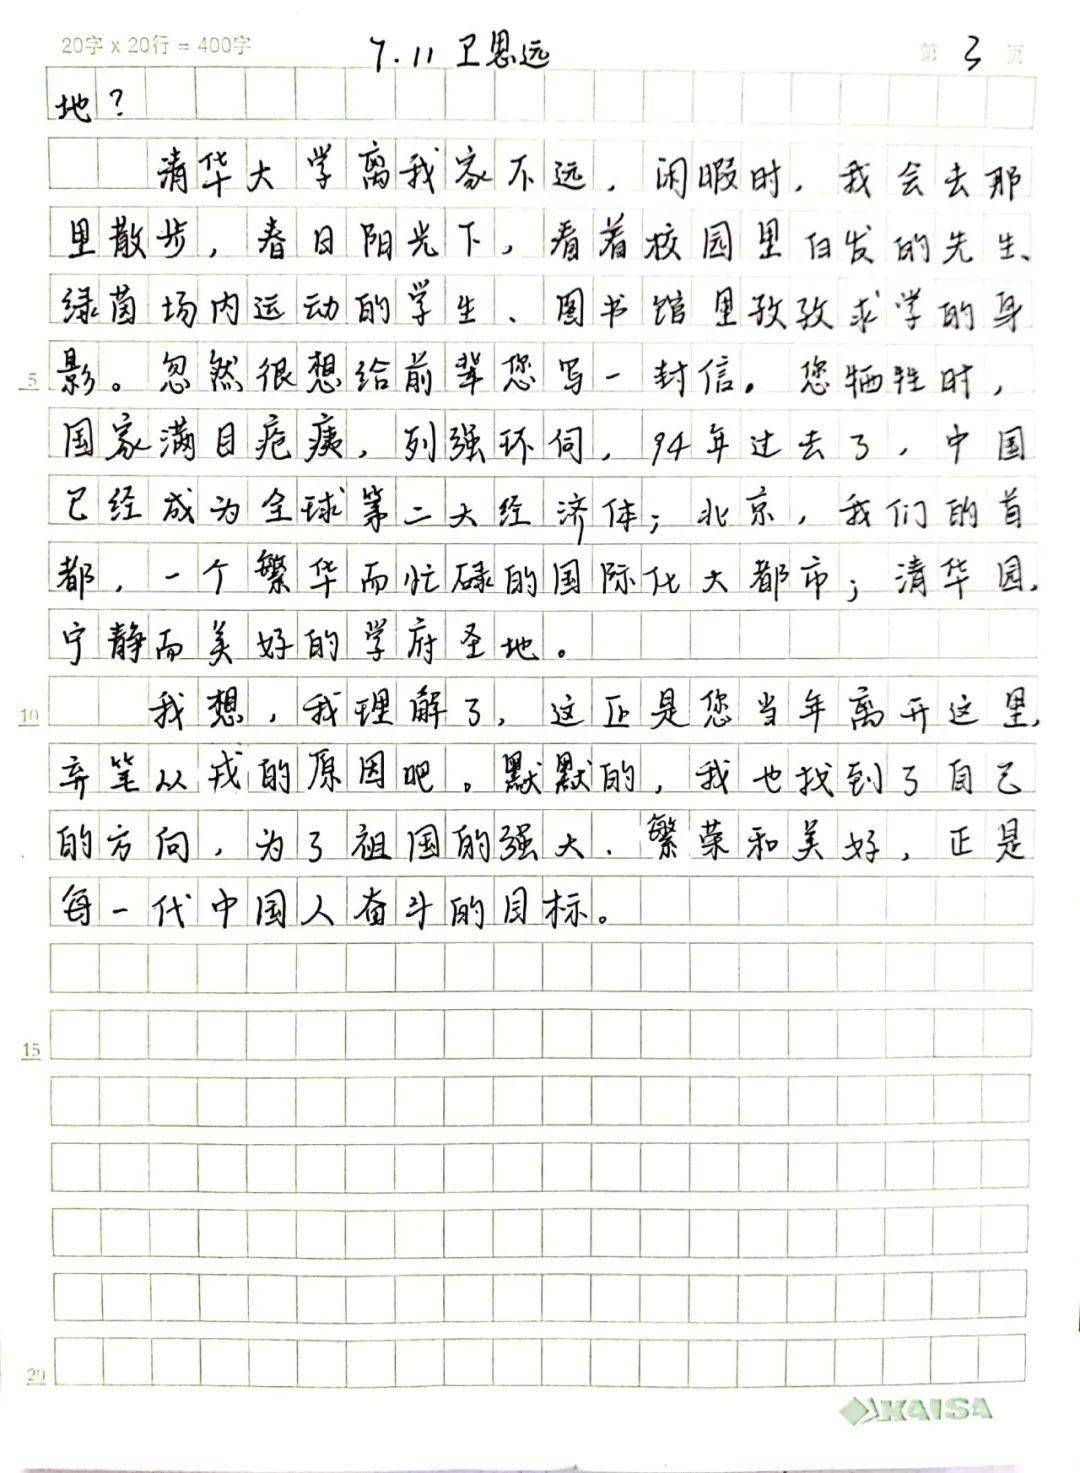 20字 x 20行 = 400字
7.11 卫思远
第 3 页
地？
清华大学离我家不远，闲暇时，我会去那
里散步，春日阳光下，看着校园里白发的先生、
绿茵场内运动的学生、图书馆里孜孜求学的身
5
影。忽然很想给前辈您写一封信。您牺牲时，
国家满目疮痍，列强环伺，94年过去了，中国
已经成为全球第二大经济体；北京，我们的首
都，一个繁华而忙碌的国际化大都市；清华园，
宁静而美好的学府圣地。
10
我想，我理解了，这正是您当年离开这里，
弃笔从戎的原因吧。默默的，我也找到了自己
的方向，为了祖国的强大、繁荣和美好，正是
每一代中国人奋斗的目标。
15
20
KAISA